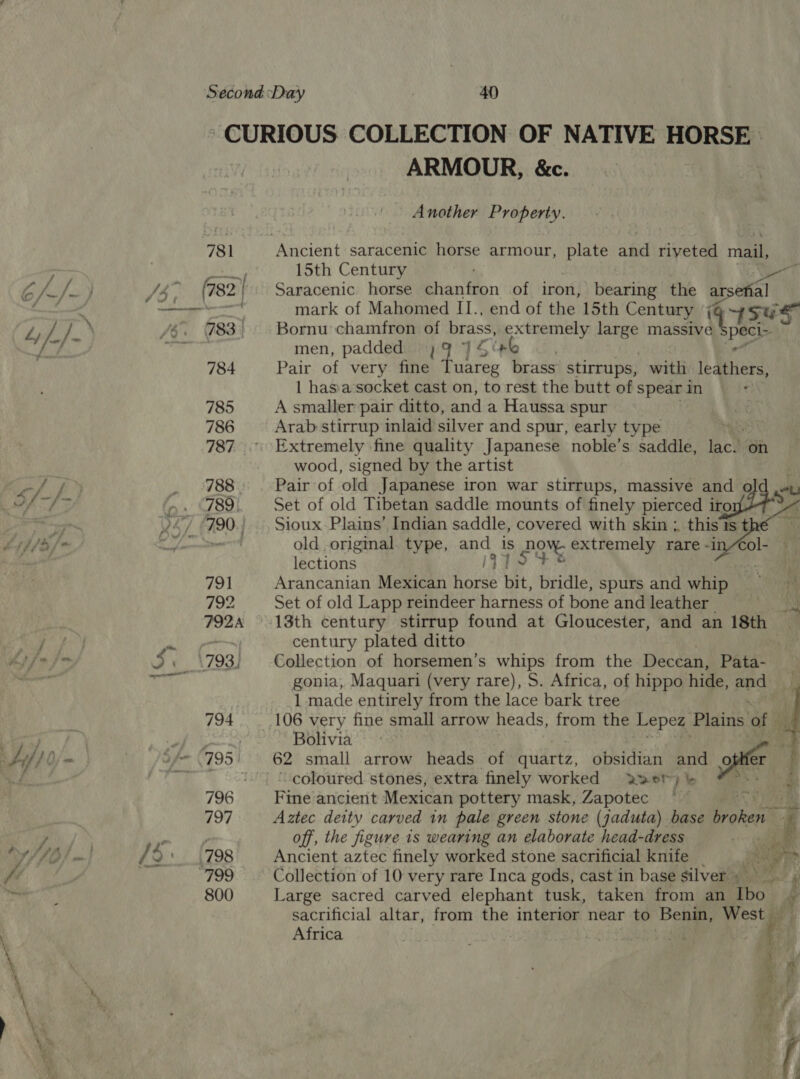 Second Day 40
CURIOUS COLLECTION OF NATIVE HORSE
ARMOUR, &c.
Another Property.
781 Ancient saracenic horse armour, plate and riveted mail,
15th Century
782 Saracenic horse chanfron of iron, bearing the arsenal
mark of Mahomed II., end of the 15th Century
783 Bornu chamfron of brass, extremely large massive speci-
men, padded
784 Pair of very fine Tuareg brass stirrups, with leathers,
1 has a socket cast on, to rest the butt of spear in
785 A smaller pair ditto, and a Haussa spur
786 Arab stirrup inlaid silver and spur, early type
787 Extremely fine quality Japanese noble's saddle, lac. on
wood, signed by the artist
788 Pair of old Japanese iron war stirrups, massive and old
789 Set of old Tibetan saddle mounts of finely pierced iron
790 Sioux Plains' Indian saddle, covered with skin ; this is the
old original type, and is now extremely rare in col-
lections
791 Arancanian Mexican horse bit, bridle, spurs and whip
792 Set of old Lapp reindeer harness of bone and leather
792A 13th century stirrup found at Gloucester, and an 18th
century plated ditto
793 Collection of horsemen's whips from the Deccan, Pata-
gonia, Maquari (very rare), S. Africa, of hippo hide, and
1 made entirely from the lace bark tree
794 106 very fine small arrow heads, from the Lepez Plains of
Bolivia
795 62 small arrow heads of quartz, obsidian and other
coloured stones, extra finely worked
796 Fine ancient Mexican pottery mask, Zapotec
797 Aztec deity carved in pale green stone (jaduta) base broken
off, the figure is wearing an elaborate head-dress
798 Ancient aztec finely worked stone sacrificial knife
799 Collection of 10 very rare Inca gods, cast in base silver
800 Large sacred carved elephant tusk, taken from an Ibo
sacrificial altar, from the interior near to Benin, West
Africa